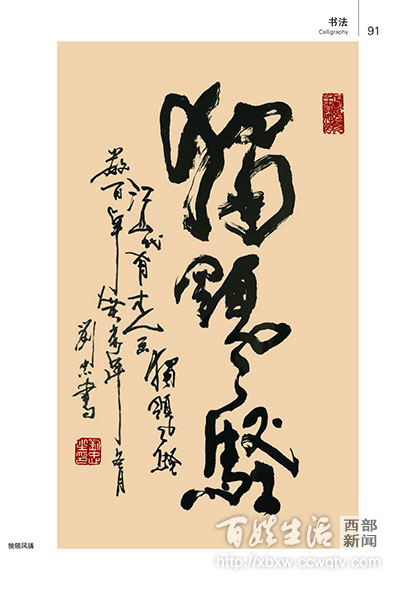 书法
Calligraphy
91
獨領風騷
江山代有才人出獨領風騷
數百年癸未年冬月
劉忠書
独领风骚
百姓生活
西部
新闻
http://xbxw.ccwqtv.com